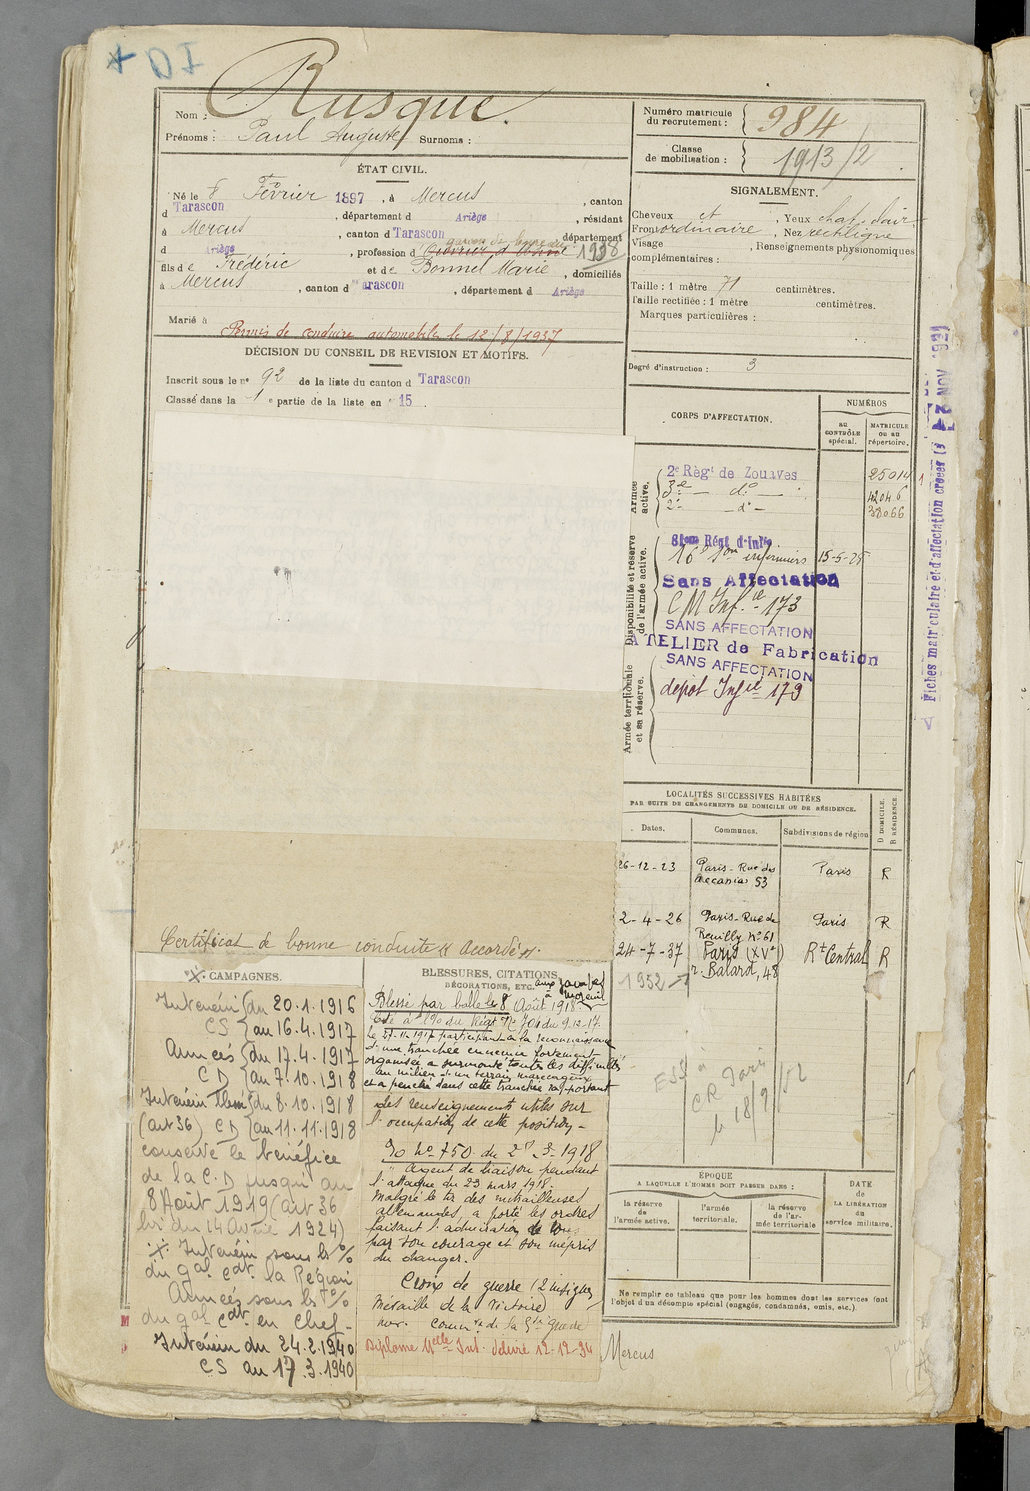 Rusque
Nom :
Prénoms : Paul Auguste Surnoms :
ÉTAT CIVIL.
Né le 8 Février 1897, à Mercus, canton
d Tarascon, département d Ariège, résidant
à Mercus, canton d Tarascon département
d Ariège, profession d 1938
fils de Frédéric et de Bonnel Marie, domiciliés
à Mercus, canton d arascon, département d Ariège
Marié à
Permis de conduire automobile le 12/8/1937
DÉCISION DU CONSEIL DE REVISION ET MOTIFS.
Inscrit sous le n° 92 de la liste du canton d Tarascon
Classé dans la 1e partie de la liste en 15
Numéro matricule
du recrutement : 984
Classe
de mobilisation : 1913/2
SIGNALEMENT.
Cheveux, Yeux chat. clair
Front ordinaire, Nez rectiligne
Visage, Renseignements physionomiques
complémentaires :
Taille : 1 mètre 71 centimètres.
Taille rectifiée : 1 mètre centimètres.
Marques particulières :
Degré d'instruction : 3
CORPS D'AFFECTATION.
NUMÉROS
AU CONTRÔLE spécial.
MATRICULE OU AU répertoire.
Armée active.
2e Régt de Zouaves 25014
3e — do — 42046
2e — do — 38066
Disponibilité et réserve de l'armée active.
81eme Régt d'Infie
16e Son infirmiers 15-5-25
Sans Affectation
CM Infie 173
SANS AFFECTATION
ATELIER de Fabrication
SANS AFFECTATION
Armée territoriale et sa réserve.
dépot Infie 179
Fiches matriculaire et d'affectation créées le NOV 1921
LOCALITÉS SUCCESSIVES HABITÉES
PAR SUITE DE CHANGEMENTS DE DOMICILE OU DE RÉSIDENCE.
Dates. Communes. Subdivisions de région
D DOMICILE.
R RÉSIDENCE
26-12-23 Paris - Rue des 53 Paris R
2-4-26 Paris - Rue de Reuilly No 61 Paris R
24-7-37 Paris (XVe) r. Balard, 48 Rt Central R
1952
Certificat de bonne conduite "accordé".
CAMPAGNES.
Intérieur du 20.1.1916
CS au 16.4.1917
Armées du 17.4.1917
CD au 7.10.1918
Intérieur du 8.10.1918
(art 36) CD au 11.11.1918
conserve le bénéfice
de la C.D jusqu'au
8 Août 1919 (art 36
loi du 14 Avril 1924)
Intérieur sous les o/o
du gal cdt la Région
Armées sous les o/o
du gal cdt en chef -
Intérieur du 24.2.1940
CS au 17.3.1940
BLESSURES, CITATIONS,
DÉCORATIONS, ETC.
Blessé par balle le 8 Août 1918.
Cité à l'Ordre du Régt No 701 du 9.12.17.
Le 27.11.1917 participant à la reconnaissance
d'une tranchée ennemie fortement
organisée a surmonté toutes les difficultés
au milieu d'un terrain marécageux
et a pénétré dans cette tranchée rapportant
des renseignements utiles sur
l'occupation de cette position -
No 750 du 2 1918
Agent de liaison pendant
l'attaque du 29 mars 1918.
Malgré le tir des mitrailleuses
allemandes, a porté les ordres
faisant l'admiration de tous
par son courage et son mépris
du danger.
Croix de guerre (2
Médaille de la Victoire)
de la Gde Guerre
Diplome délivré 12-12-34
18/9/52
ÉPOQUE
A LAQUELLE L'HOMME DOIT PASSER DANS :
la réserve de l'armée active.
l'armée territoriale.
la réserve de l'armée territoriale
DATE de LA LIBÉRATION du service militaire.
Ne remplir ce tableau que pour les hommes dont les services font
l'objet d'un décompte spécial (engagés, condamnés, omis, etc.).
Mercus